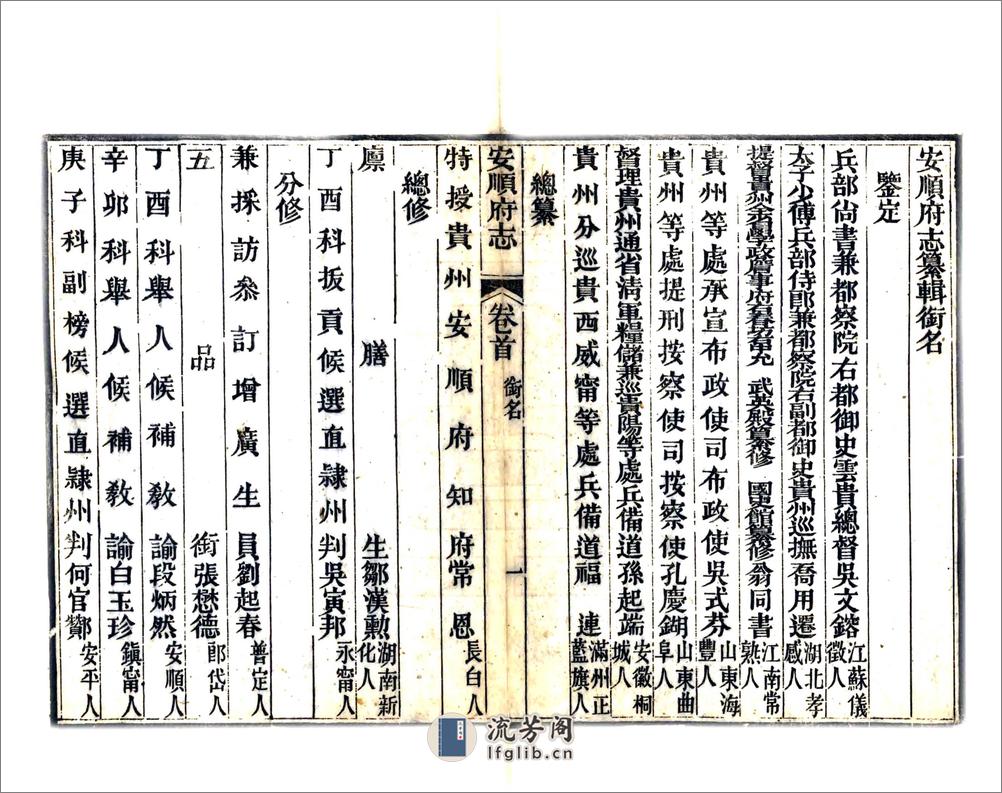 安順府志纂輯銜名
鑒定
兵部尙書兼都察院右都御史雲貴總督吳文鎔江蘇儀徵人
太子少傅兵部侍郎兼都察院右副都御史貴州巡撫喬用遷湖北孝感人
提督貴州全省學政詹事府右春坊右中允　武英殿纂修　國史館纂修翁同書江南常熟人
貴州等處承宣布政使司布政使吳式芬山東海豐人
貴州等處提刑按察使司按察使孔慶鎺山東曲阜人
督理貴州通省淸軍糧儲兼巡貴陽等處兵備道孫起端安徽桐城人
貴州分巡貴西威甯等處兵備道福　連滿州正藍旗人
總纂
安順府志　卷首　銜名　一
特授貴州安順府知府常恩長白人
總修
廩膳生鄒漢勳湖南新化人
丁酉科拔貢候選直隸州判吳寅邦永甯人
分修
兼採訪叅訂增廣生員劉起春普定人
五品銜張懋德郎岱人
丁酉科舉人候補敎諭段炳然安順人
辛卯科舉人候補敎諭白玉珍鎭甯人
庚子科副榜候選直隸州判何官贊安平人
流芳阁
lfglib.cn